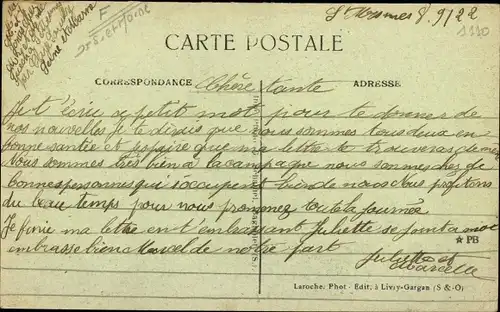 St Mesmes 8. 9/22
1110
F
Seine et Marne
Seine et Marne
CARTE POSTALE
CORRESPONDANCE
ADRESSE
Chère tante
Je t'écrie ce petit mot pour te donner de
nos nouvelles je te dirais que nous sommes tous deux en
bonne santée et espaire que ma lettre te trouveras de même
Nous sommes très bien a la campagne nous sommes chez de
bonnes personnes qui s'occupent bien de nous Nous profitons
du beau temps pour nous promenez toute la journée
Je finie ma lettre en t'embrassant Juliette se joint a moi
embrasse bien Marcel de notre part
Juliette et
Marcelle
★ PB
Laroche, Phot - Edit. à Livry-Gargan (S & O)